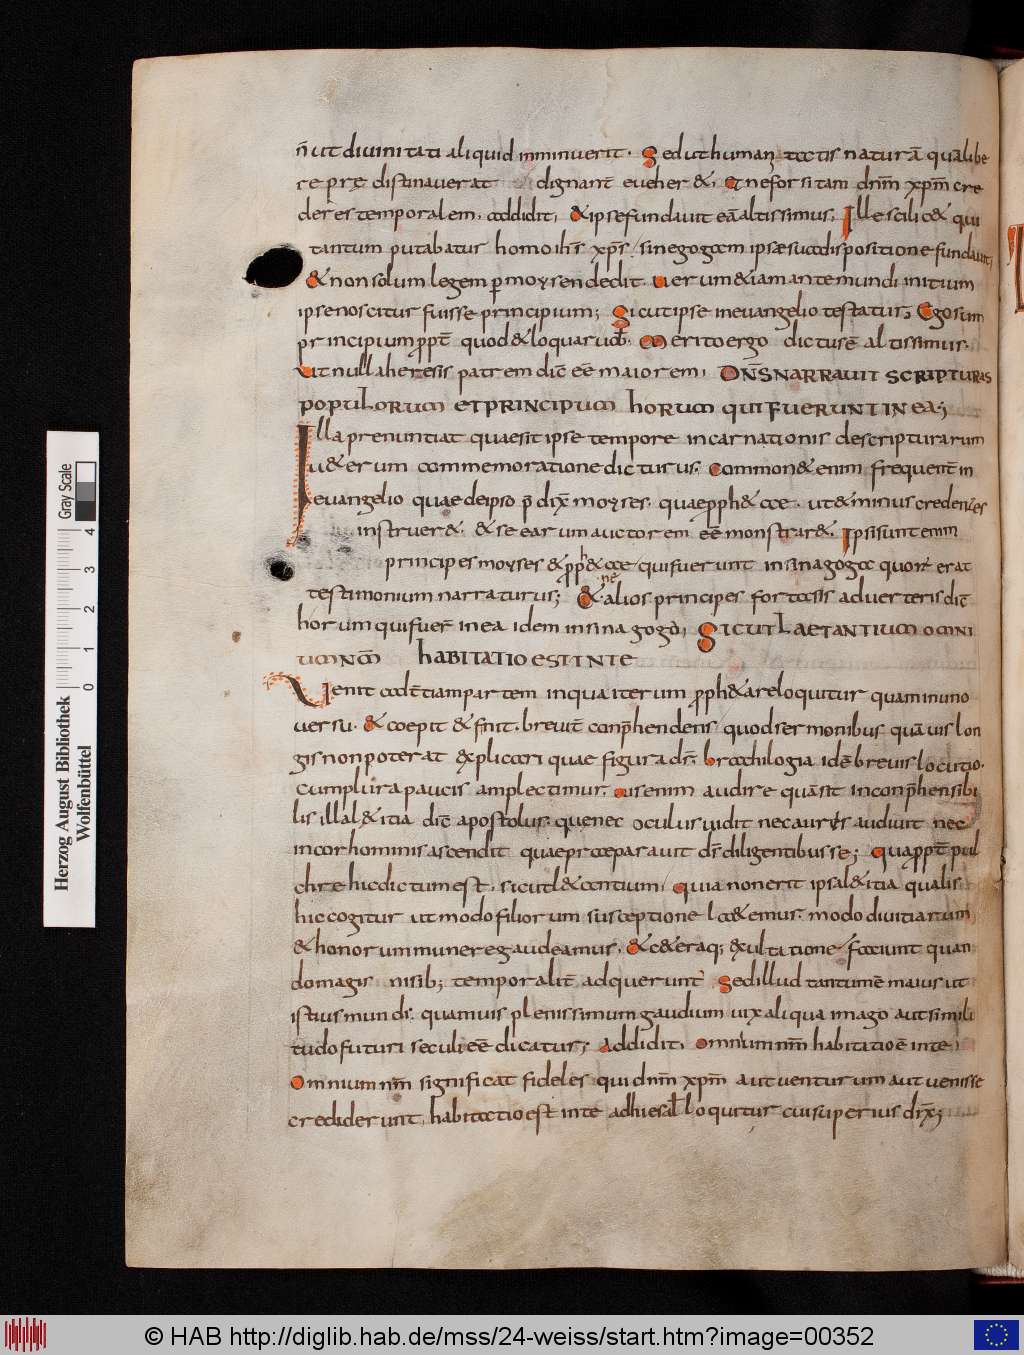 n̄ ut divinitati aliquid inminuerit. Sed ut humanȩ tactis naturā qualibe
re prę destinaverat dignant̄ eveher&. Et ne forsitam dnm̄ xpm̄ cre
deres temporalem. addidit, & ipse fundavit eā altissimus. Ille scilic& qui
tantum putabatur homo ih̄s xp̄s sinegogam ipsæ sua dispositione fundavit,
& non solum legem p moysen dedit. verum &iam ante mundi initium
ipse noscitur fuisse principium; Sicut ipse in evangelio testatur; Ego sum
principium ꝓpt̄ quod & loquar vob̄. Merito ergo dictus ē altissimus.
ut nulla heresis patrem dic̄ eē maiorem. DN̄S NARRAVIT SCRIPTURAS
POPULORUM ET PRINCIPUM HORUM QUI FUERUNT IN EA;
Illa prenuntiat quae sit ipse tempore incarnationis descripturarum
v&erum commemoratione dicturus. Common& enim frequent̄ in
evangelio quae de ipso p̄dix̄ moyses. quae ꝓph&ae. ut & minus credentes
instruer&. & se earum auctorem eē monstrar&. Ipsi sunt enim
principes moyses & ꝓph&ae qui fuerunt in sinagoga quor̄ erat
testimonium narraturus; & ne alios principes fortasis adverteris dic̄
horum qui fuer̄ in ea idem in sinagoga; SICUT LAETANTIUM OMNI
UM NM̄ HABITATIO EST IN TE
Venit ad etiam partem in qua iterum ꝓph&a reloquitur quam in uno
versu. & coepit & finit. brevit̄ conp̄hendens quod sermonibus quāvis lon
gis non poterat explicari quae figura dr̄. brachilogia id ē brevis locutio.
cum plura paucis amplectimur. Quis enim audire quā sit inconp̄hensibi
lis illa l&itia dic̄ apostolus. que nec oculus vidit nec auris audivit nec
in cor hominis ascendit quae praeparavit ds̄ diligentibus se; Qua ꝓpt̄ pul
chre hic dictum est. sicut l&antium, quia non erit ipsa l&itia qualis
hic cogitur ut modo filiorum susceptione la&emur. modo divitiarum
& honorum munere gaudeamus. & c&eraq; exultatione faciunt quan
do magis nisib; temporalit̄ adquerunt̄ Sed illud tantum ē maius ut
istius mundi. quamvis plenissimum gaudium vix aliqua imago aut simili
tudo futuri seculi eē dicatur; Addidit. Omnium nm̄ habitatio ē in te.
Omnium nm̄ significat fideles qui dnm̄ xpm̄ aut venturum aut venisse
crediderunt. habitatio est in te ad hierusal̄ loquitur cui superius dix̄;
Herzog August Bibliothek
Wolfenbüttel
Gray Scale
0 1 2 3 4
© HAB http://diglib.hab.de/mss/24-weiss/start.htm?image=00352